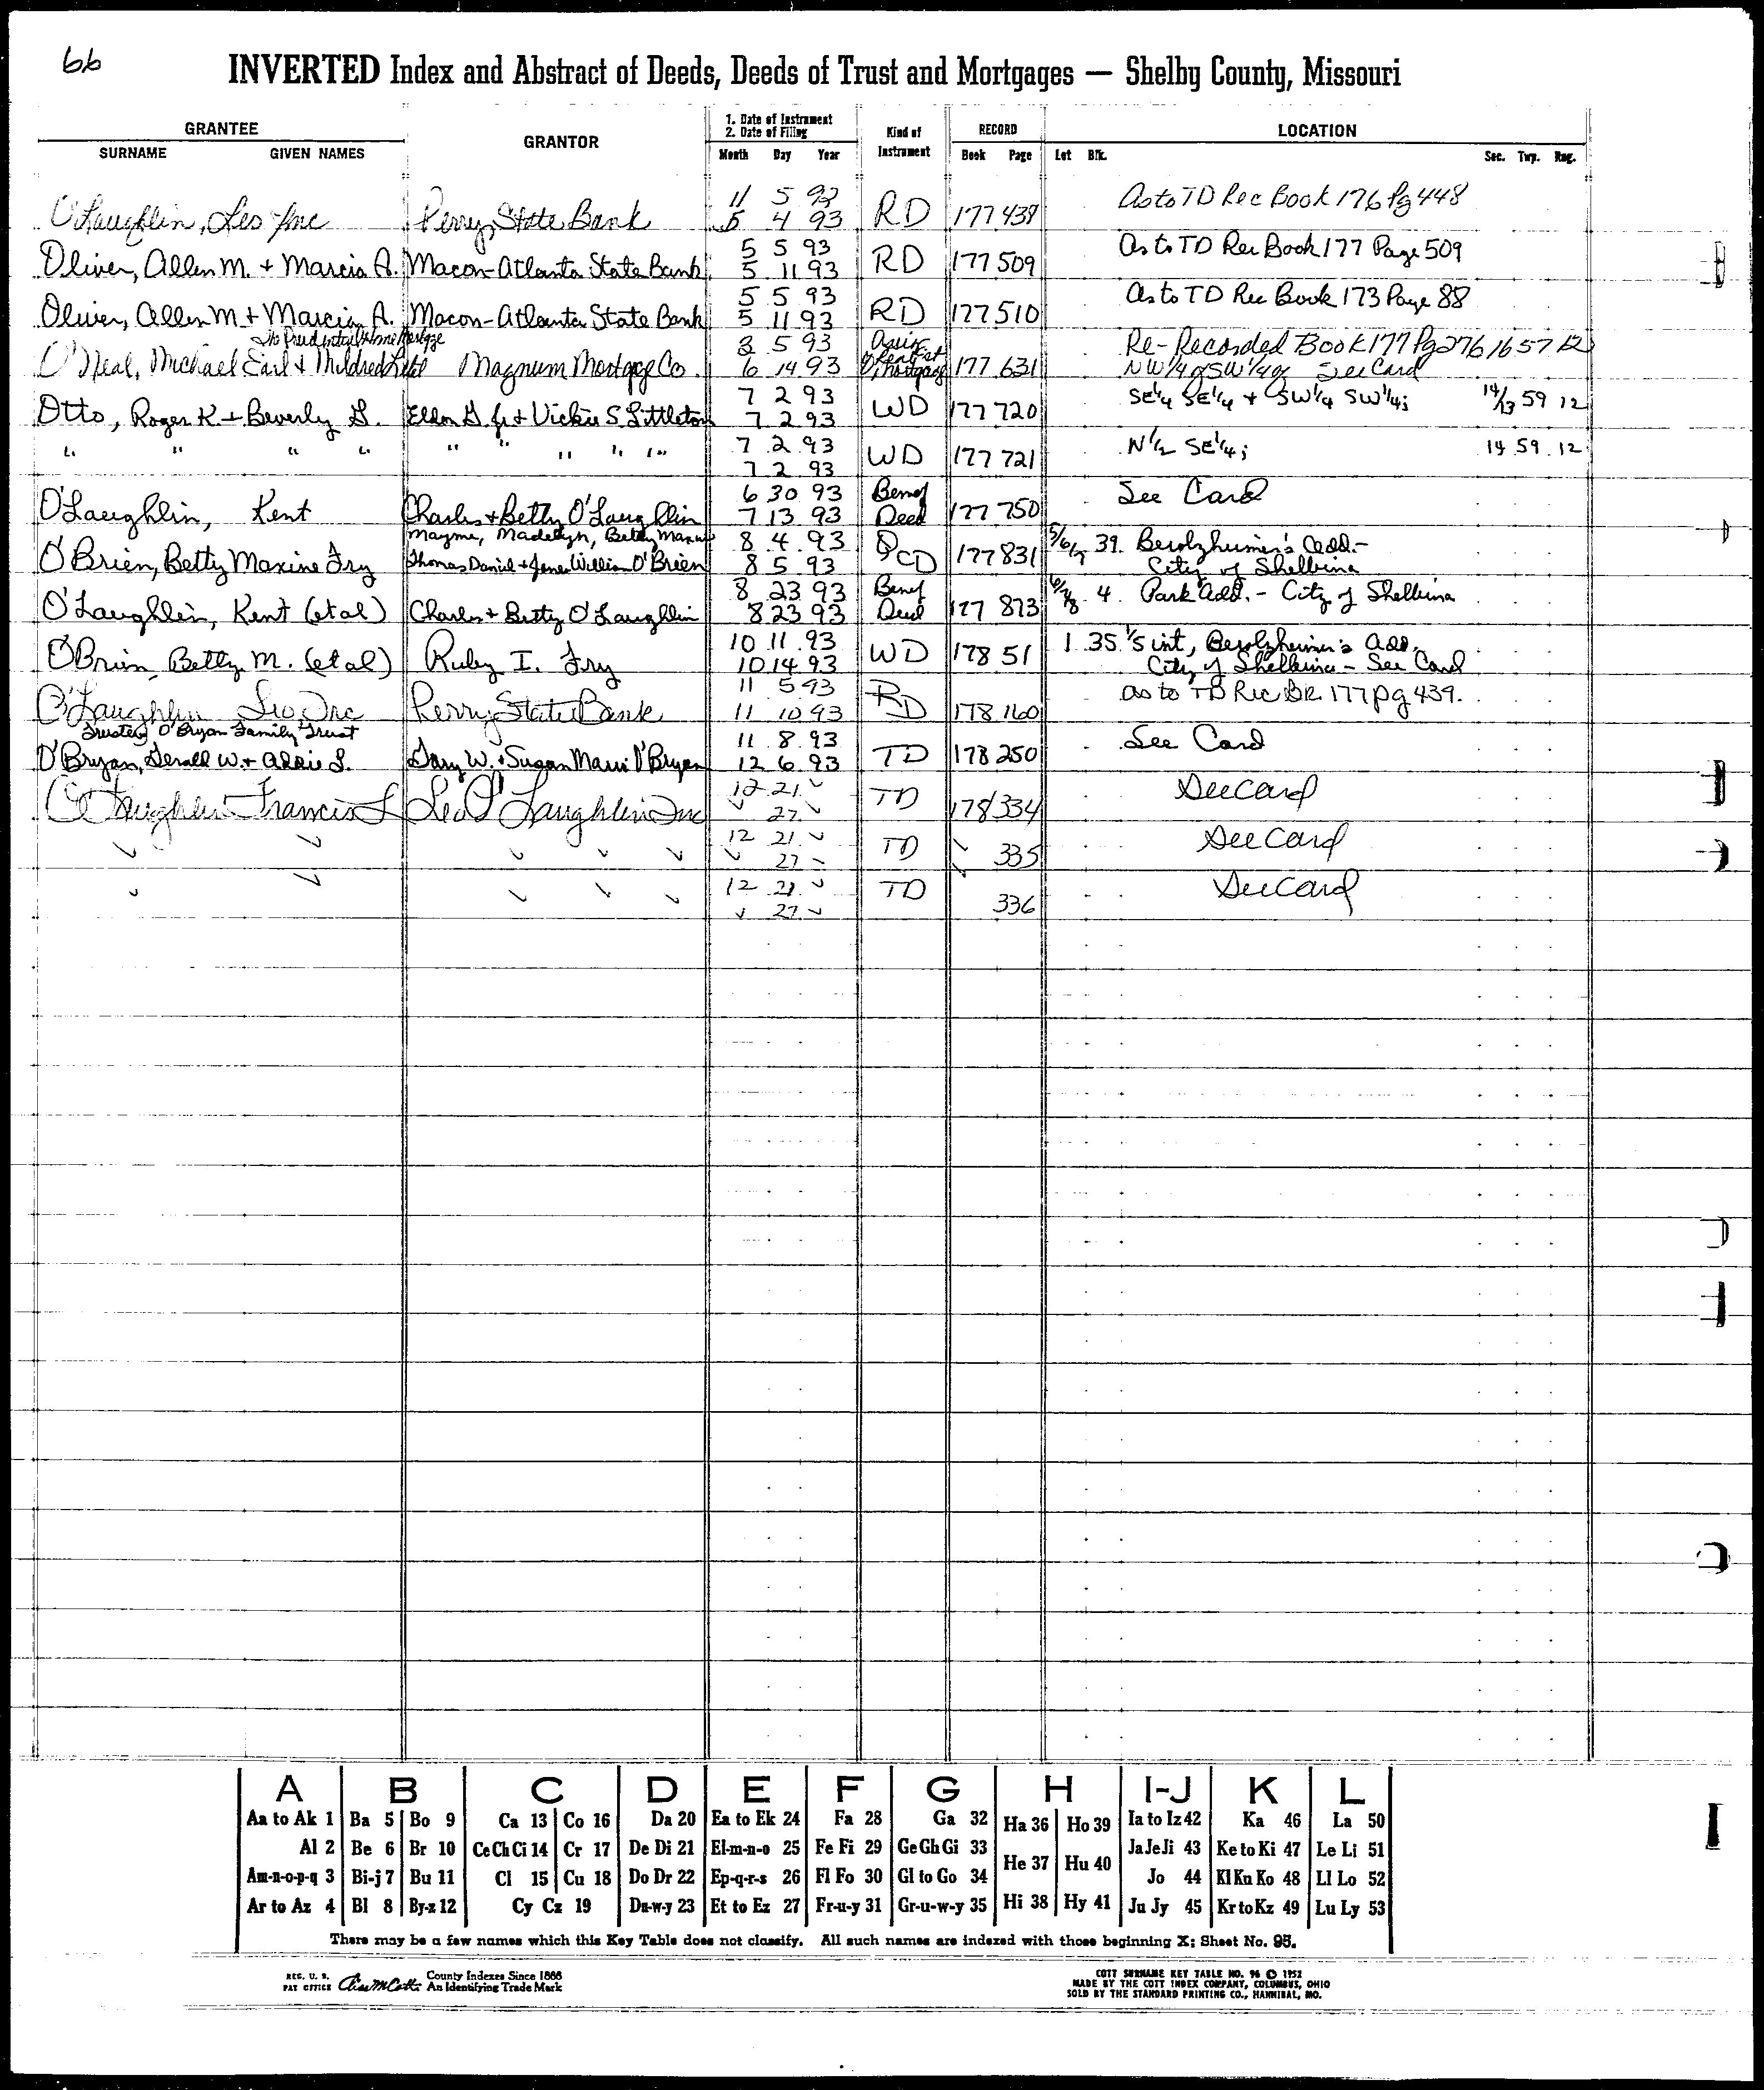 66
INVERTED Index and Abstract of Deeds, Deeds of Trust and Mortgages — Shelby County, Missouri
GRANTEE GRANTOR 1. Date of Instrument 2. Date of Filing Kind of Instrument RECORD LOCATION
SURNAME GIVEN NAMES Month Day Year Book Page Lot Blk. Sec. Twp. Rng.
O'Laughlin, Leo Inc Perry State Bank 11 5 93 RD 177 439 As to TD Rec Book 176 Pg 448
5 4 93
Oliver, Allen M. + Marcia A. Macon-Atlanta State Bank 5 5 93 RD 177 509 As to TD Rec Book 177 Page 509
5 11 93
Oliver, Allen M + Marcia A. Macon-Atlanta State Bank 5 5 93 RD 177 510 As to TD Rec Book 173 Page 88
5 11 93
The Prudential Home Mortgage
O'Neal, Michael Earl + Mildred Magnum Mortgage Co. 2 5 93 177 631 Re-Recorded Book 177 Pg 276 16 57 12
6 14 93 Mortgage NW 1/4 of SW 1/4 of See Card
Otto, Roger K + Beverly G. Eldon G. Jr + Vickie S. Littleton 7 2 93 WD 177 720 SE 1/4 SE 1/4 + SW 1/4 SW 1/4; 14/13 59 12
7 2 93
" " " " " " " " " 7 2 93 WD 177 721 N 1/2 SE 1/4; 14 59 12
7 2 93
O'Laughlin, Kent Charles + Betty O'Laughlin 6 30 93 Benef Deed 177 750 See Card
7 13 93
Mayme, Madelyn, Betty Maxine
O'Brien, Betty Maxine Fry Thomas Daniel + James William O'Brien 8 4 93 QCD 177 831 5/6/7 39. Berolzheimer's Add.-
8 5 93 City of Shelbina
O'Laughlin, Kent (et al) Charles + Betty O'Laughlin 8 23 93 Benef Deed 177 873 4. Park Add. - City of Shelbina
8 23 93
O'Brien, Betty M. (et al) Ruby I. Fry 10 11 93 WD 178 51 1 35 1/5 int, Berolzheimer's Add.
10 14 93 City of Shelbina - See Card
O'Laughlin Leo, Inc Perry State Bank 11 5 93 RD 178 160 As to TD Rec Bk 177 pg 439.
11 10 93
Trustee of O'Bryan Family Trust
O'Bryan, Gerald W. + Addie L. Gary W. + Susan Marie O'Bryan 11 8 93 TD 178 250 See Card
12 6 93
O'Laughlin Francis L Leo O'Laughlin Inc 12 21 ✓ TD 178 334 See Card
✓ 27 ✓
✓ ✓ ✓ ✓ ✓ 12 21 ✓ TD ✓ 335 See Card
✓ 27 ✓
✓ ✓ ✓ ✓ ✓ 12 21 ✓ TD 336 See Card
✓ 27 ✓
A B C D E F G H I-J K L
Aa to Ak 1 Ba 5 Bo 9 Ca 13 Co 16 Da 20 Ea to Ek 24 Fa 28 Ga 32 Ha 36 Ho 39 Ia to Iz 42 Ka 46 La 50
Al 2 Be 6 Br 10 Ce Ch Ci 14 Cr 17 De Di 21 El-m-n-o 25 Fe Fi 29 Ge Gh Gi 33 He 37 Hu 40 Ja Je Ji 43 Ke to Ki 47 Le Li 51
Am-n-o-p-q 3 Bi-j 7 Bu 11 Cl 15 Cu 18 Do Dr 22 Ep-q-r-s 26 Fl Fo 30 Gl to Go 34 Jo 44 Kl Kn Ko 48 Ll Lo 52
Ar to Az 4 Bl 8 By-z 12 Cy Cz 19 Du-w-y 23 Et to Ez 27 Fr-u-y 31 Gr-u-w-y 35 Hi 38 Hy 41 Ju Jy 45 Kr to Kz 49 Lu Ly 53
There may be a few names which this Key Table does not classify. All such names are indexed with those beginning X; Sheet No. 95.
REG. U. S. PAT OFFICE County Indexes Since 1888 An Identifying Trade Mark
COTT SURNAME KEY TABLE NO. 96 © 1952
MADE BY THE COTT INDEX COMPANY, COLUMBUS, OHIO
SOLD BY THE STANDARD PRINTING CO., HANNIBAL, MO.